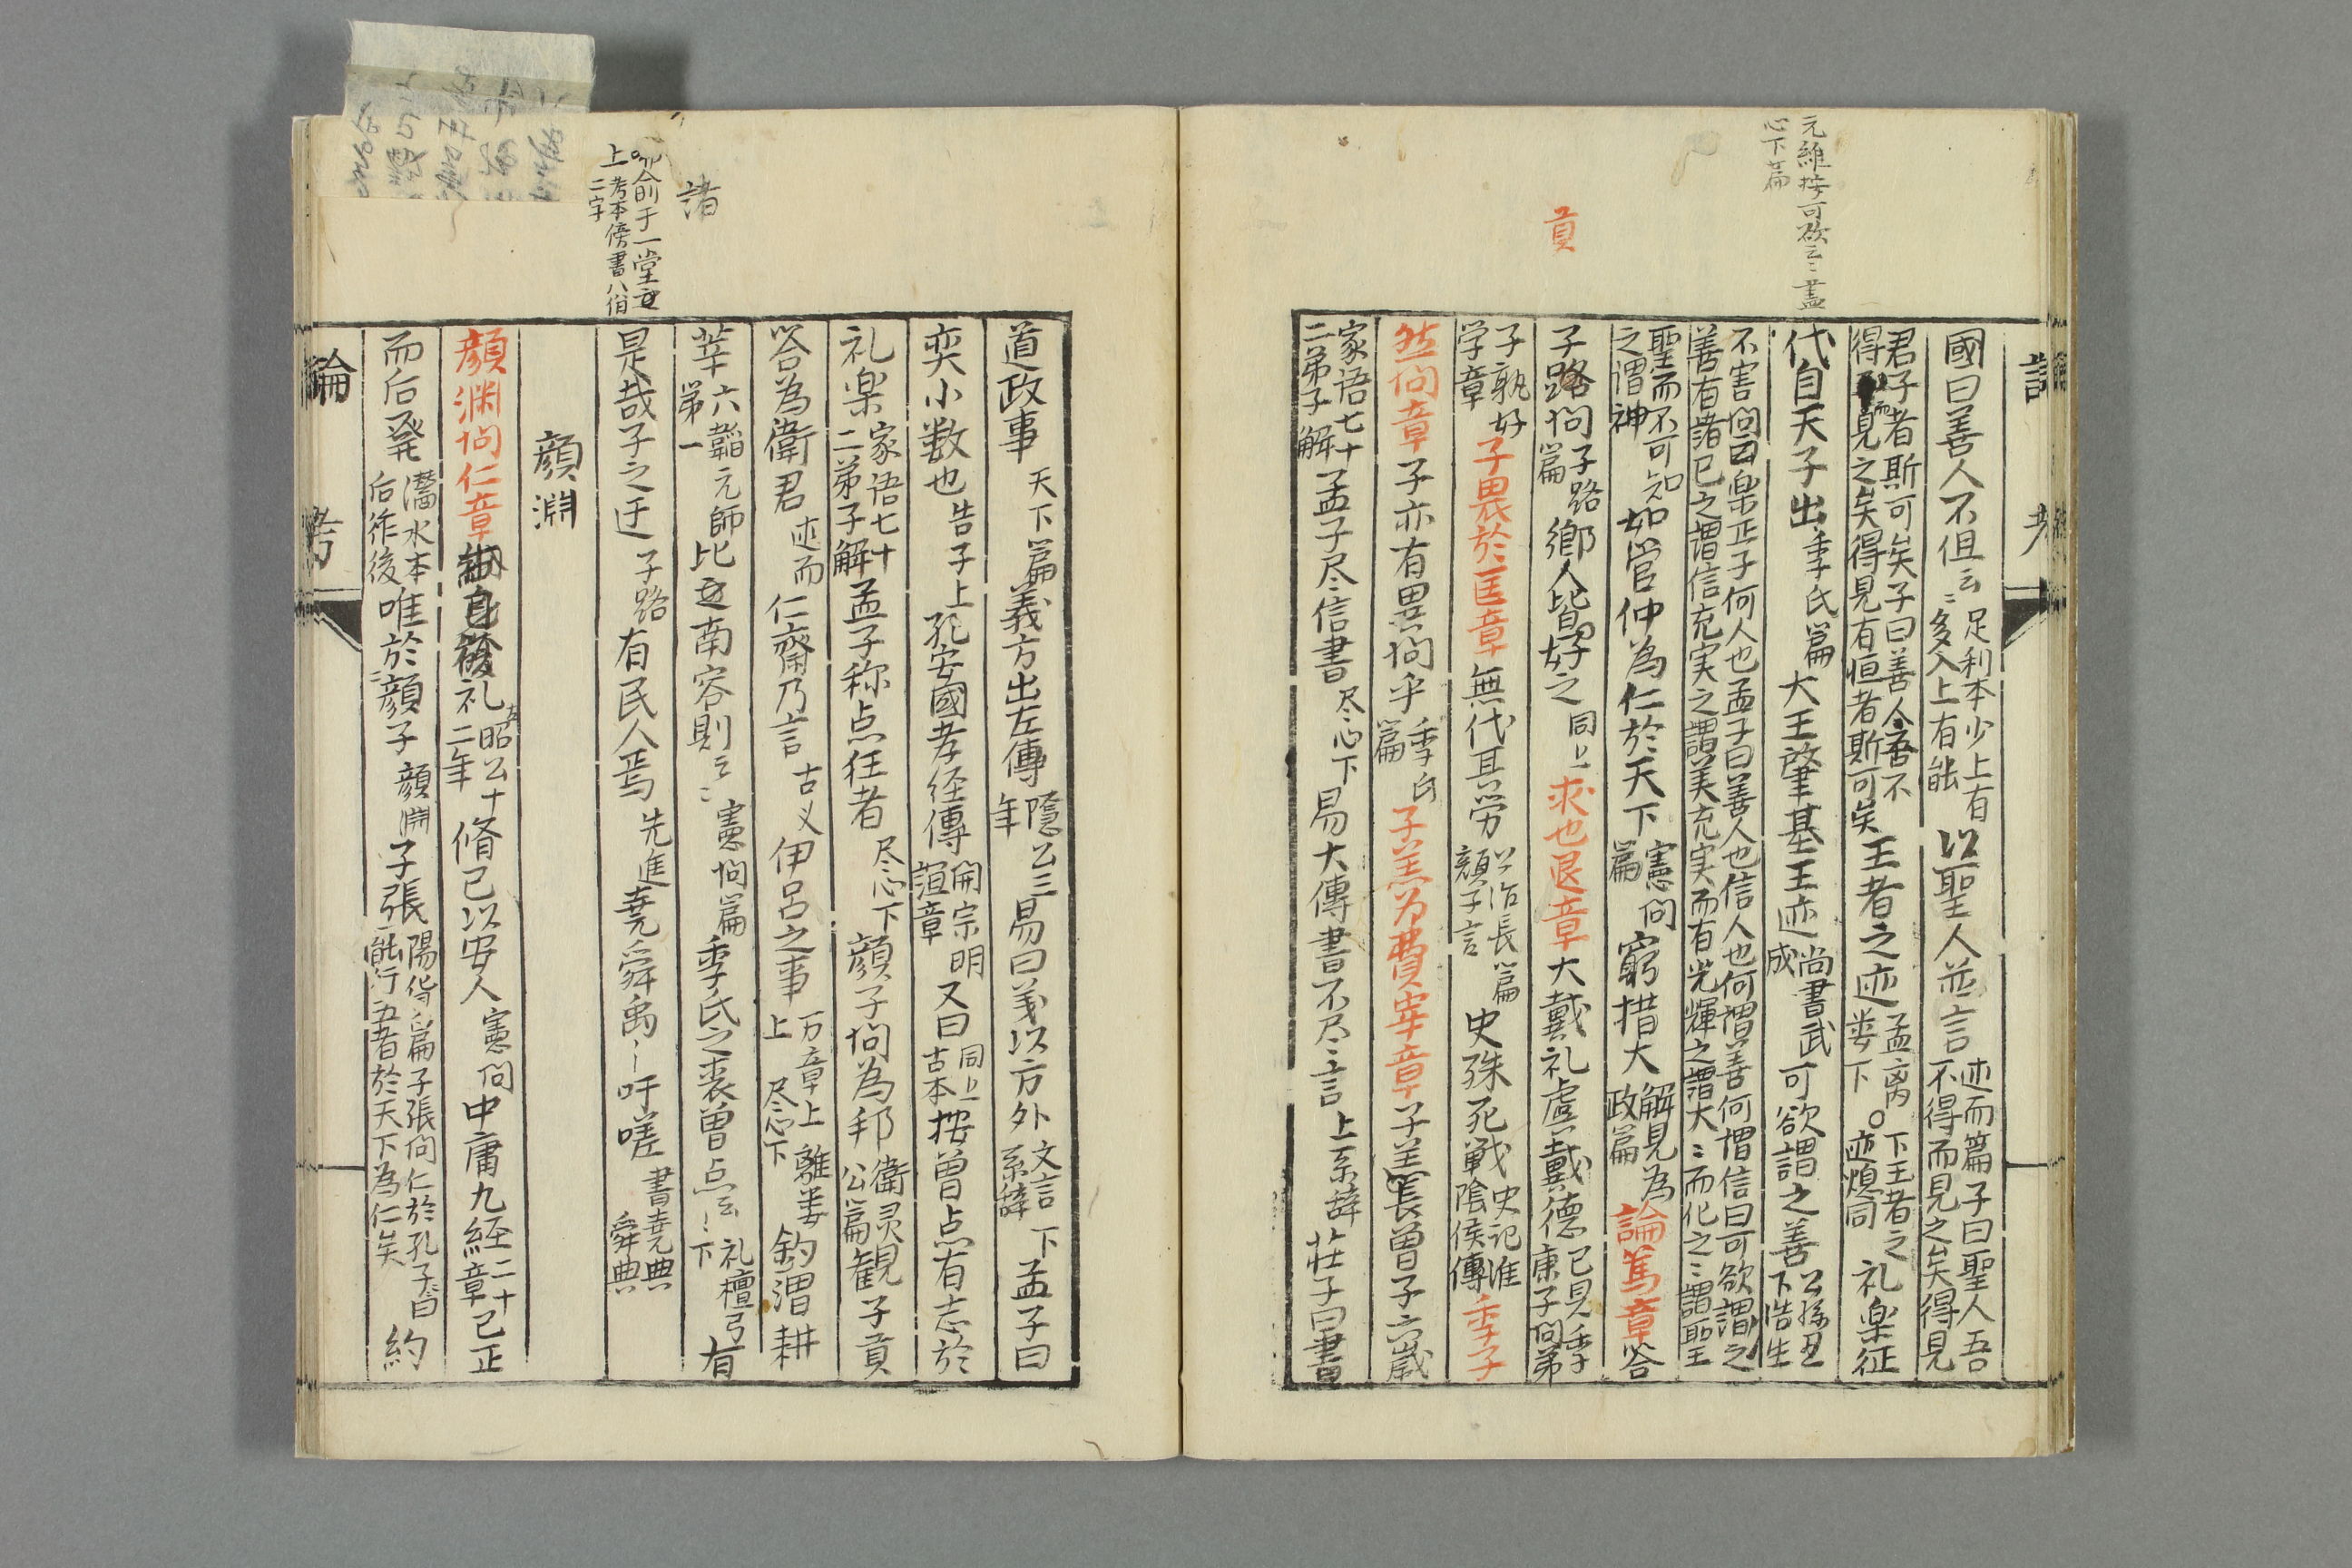 元維按可欲云〻蓋
心下篇
貢
國曰善人不但云〻足利本少上有多入上有能以聖人並言述而篇子曰聖人吾不得而見之矣得見
君子者斯可矣子曰善人吾不得而見之矣得見有恒者斯可矣王者之迹孟离娄下○下王者之迹熄同礼楽征
代自天子出季氏篇大王肇基王迹尚書武成可欲謂之善公孫丑下浩生
不害問曰楽正子何人也孟子曰善人也信人也何謂善何謂信曰可欲謂之善有諸已之謂信充実之謂美充実而有光輝之謂大〻而化之〻謂聖
聖而不可知之謂神如管仲為仁於天下憲問篇窮措大解見為政篇論篤章答
子路問子路篇鄉人皆好之同上求也退章大戴礼虞戴德已見季康子問弟
子孰好学章子畏於匡章無代其労公冶長篇顔子言史殊死戦史記淮陰侯傳季子
然問章子亦有異問乎季氏篇子羔為費宰章子羔長曾子六歲
家语七十二弟子解孟子尽信書尽心下易大傳書不尽言上系辞莊子曰書
諸
上考本傍書八佾二字
道政事天下篇義方出左傳隱公三年易曰義以方外文言系辞下孟子曰
奕小数也告子上孔安國孝経傳開宗明誼章又曰同上古本按曾点有志於
礼楽家语七十二弟子解孟子称点狂者尽心下顔子問為邦衛灵公篇観子貢
答為衛君述而仁齋乃言古义伊呂之事万章上尽心下離娄上釣渭耕
莘六韜第一元師比之南容則云〻憲問篇季氏之丧曾点云〻礼檀弓下有
是哉子之迂子路有民人焉先進堯舜禹〻吁嗟書堯典舜典
顔淵
顔渊問仁章礼左昭公十二年脩已以安人憲問中庸九経二十章已正
而后発灊水本后作後唯於顔子顔淵子張陽货篇子張問仁於孔子〻曰能行五者於天下為仁矣約
論
考